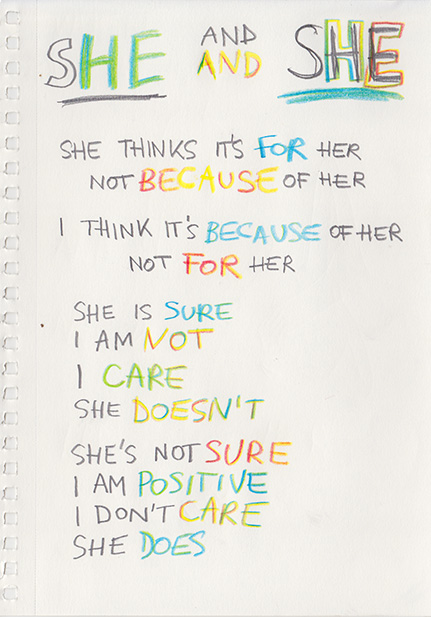 SHE AND SHE
AND
SHE THINKS IT'S FOR HER
NOT BECAUSE OF HER
I THINK IT'S BECAUSE OF HER
NOT FOR HER
SHE IS SURE
I AM NOT
I CARE
SHE DOESN'T
SHE'S NOT SURE
I AM POSITIVE
I DON'T CARE
SHE DOES